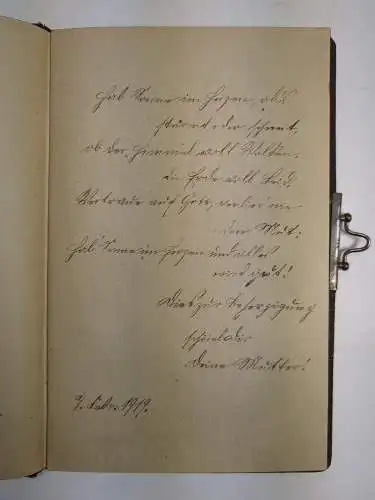 Hab' Sonne im Herzen, ob's
stürmt oder schneit,
ob der Himmel voll Wolken,
die Erde voll Leid,
Vertraue auf Gott, verlier' nie
den Mut:
Hab' Sonne im Herzen und alles
wird gut!
Dies zur Beherzigung
schrieb Dir
Deine Mutter!
9. Febr. 1919.